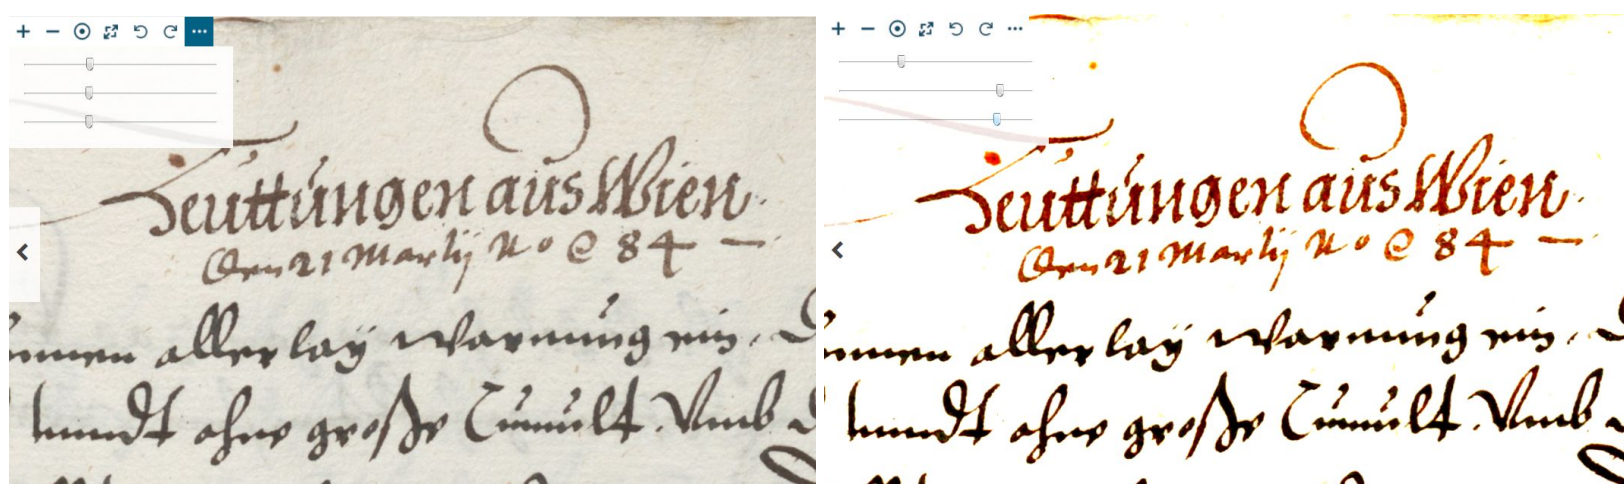 Zeuttungen aus Wien.
Den 21 Martij A o @ 84 —
aller lay Warnung ein,
ohne große Tumult. Vmb
Zeuttungen aus Wien.
Den 21 Martij A o @ 84 —
aller lay Warnung ein,
ohne große Tumult. Vmb